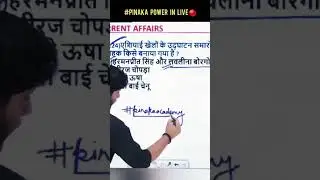 #PINAKA POWER IN LIVE
RRENT AFFAIRS
एशियाई खेलों के उद्घाटन समारो
हक किसे बनाया गया है ?
हरमनप्रीत सिंह और लवलीना बोरगो
ीरज चोपड़ा
ऊषा
बाई चेनू
#pinakaacademy